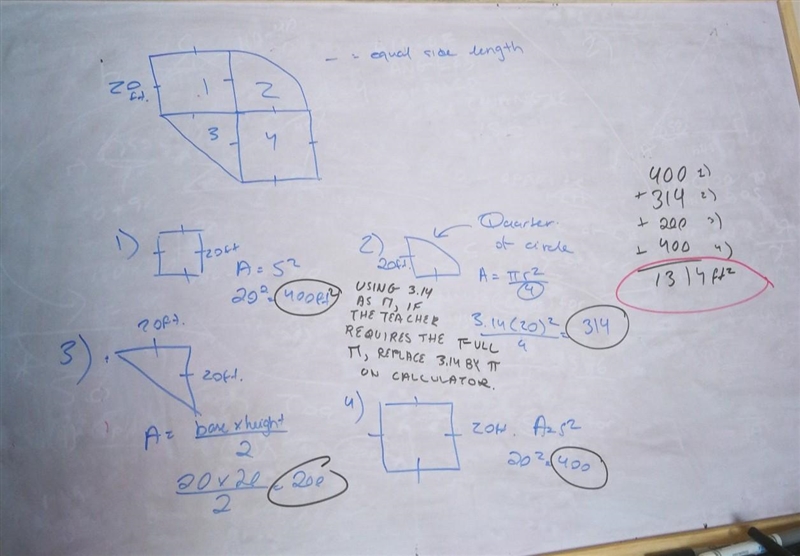 20 ft.
1
2
3
4
- = equal side length
1)
20ft
A = S²
20² = 400ft²
2)
Quarter
of circle
20ft.
A = πr²
4
USING 3.14
AS π, IF
THE TEACHER
REQUIRES THE FULL
π, REPLACE 3.14 BY π
ON CALCULATOR.
3.14(20)² = 314
4
3)
20ft.
20ft.
A = base x height
2
20 x 20 = 200
2
4)
20ft. A=S²
20² = 400
400 1)
+ 314 2)
+ 200 3)
+ 400 4)
1314ft²